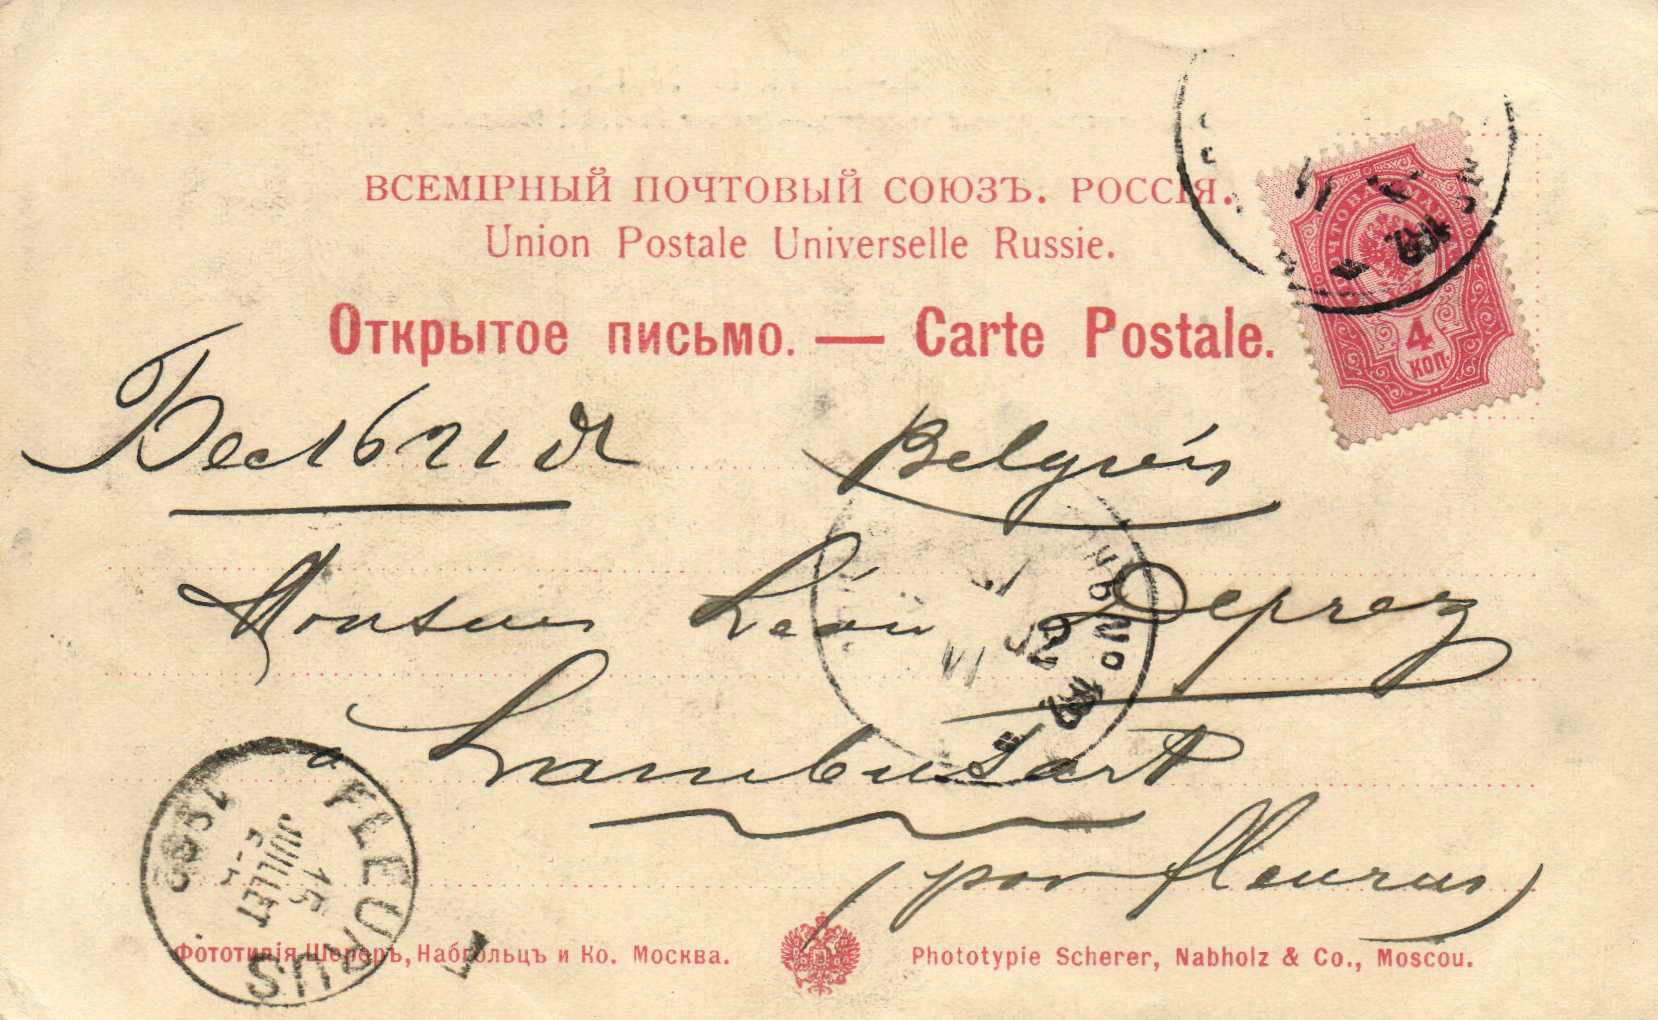 ВСЕМІРНЫЙ ПОЧТОВЫЙ СОЮЗЪ. РОССІЯ.
Union Postale Universelle Russie.
Открытое письмо. — Carte Postale.
ПОЧТОВАЯ МАРКА
4
КОП.
Бельгія Belgien
Monsieur Léon Deprez
à Lambusart
(par fleurus)
FLEURUS
15
JUILLET
Фототипія Шереръ, Набгольцъ и Ко. Москва.
Phototypie Scherer, Nabholz & Co., Moscou.